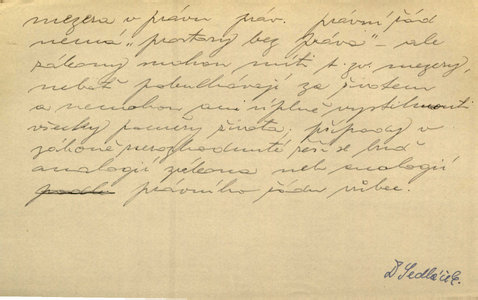 mezera v právu práv. právní řád
nemá „prostory bez práva" – ale
zákony mohou míti t. zv. mezery,
neboť pokulhávají za životem
a nemohou ani úplně vystihnouti
všecky poměry života; případy v
zákoně nerozhodnuté řeší se buď
analogií zákona neb analogií
podle právního řádu vůbec.
D Sedláček.